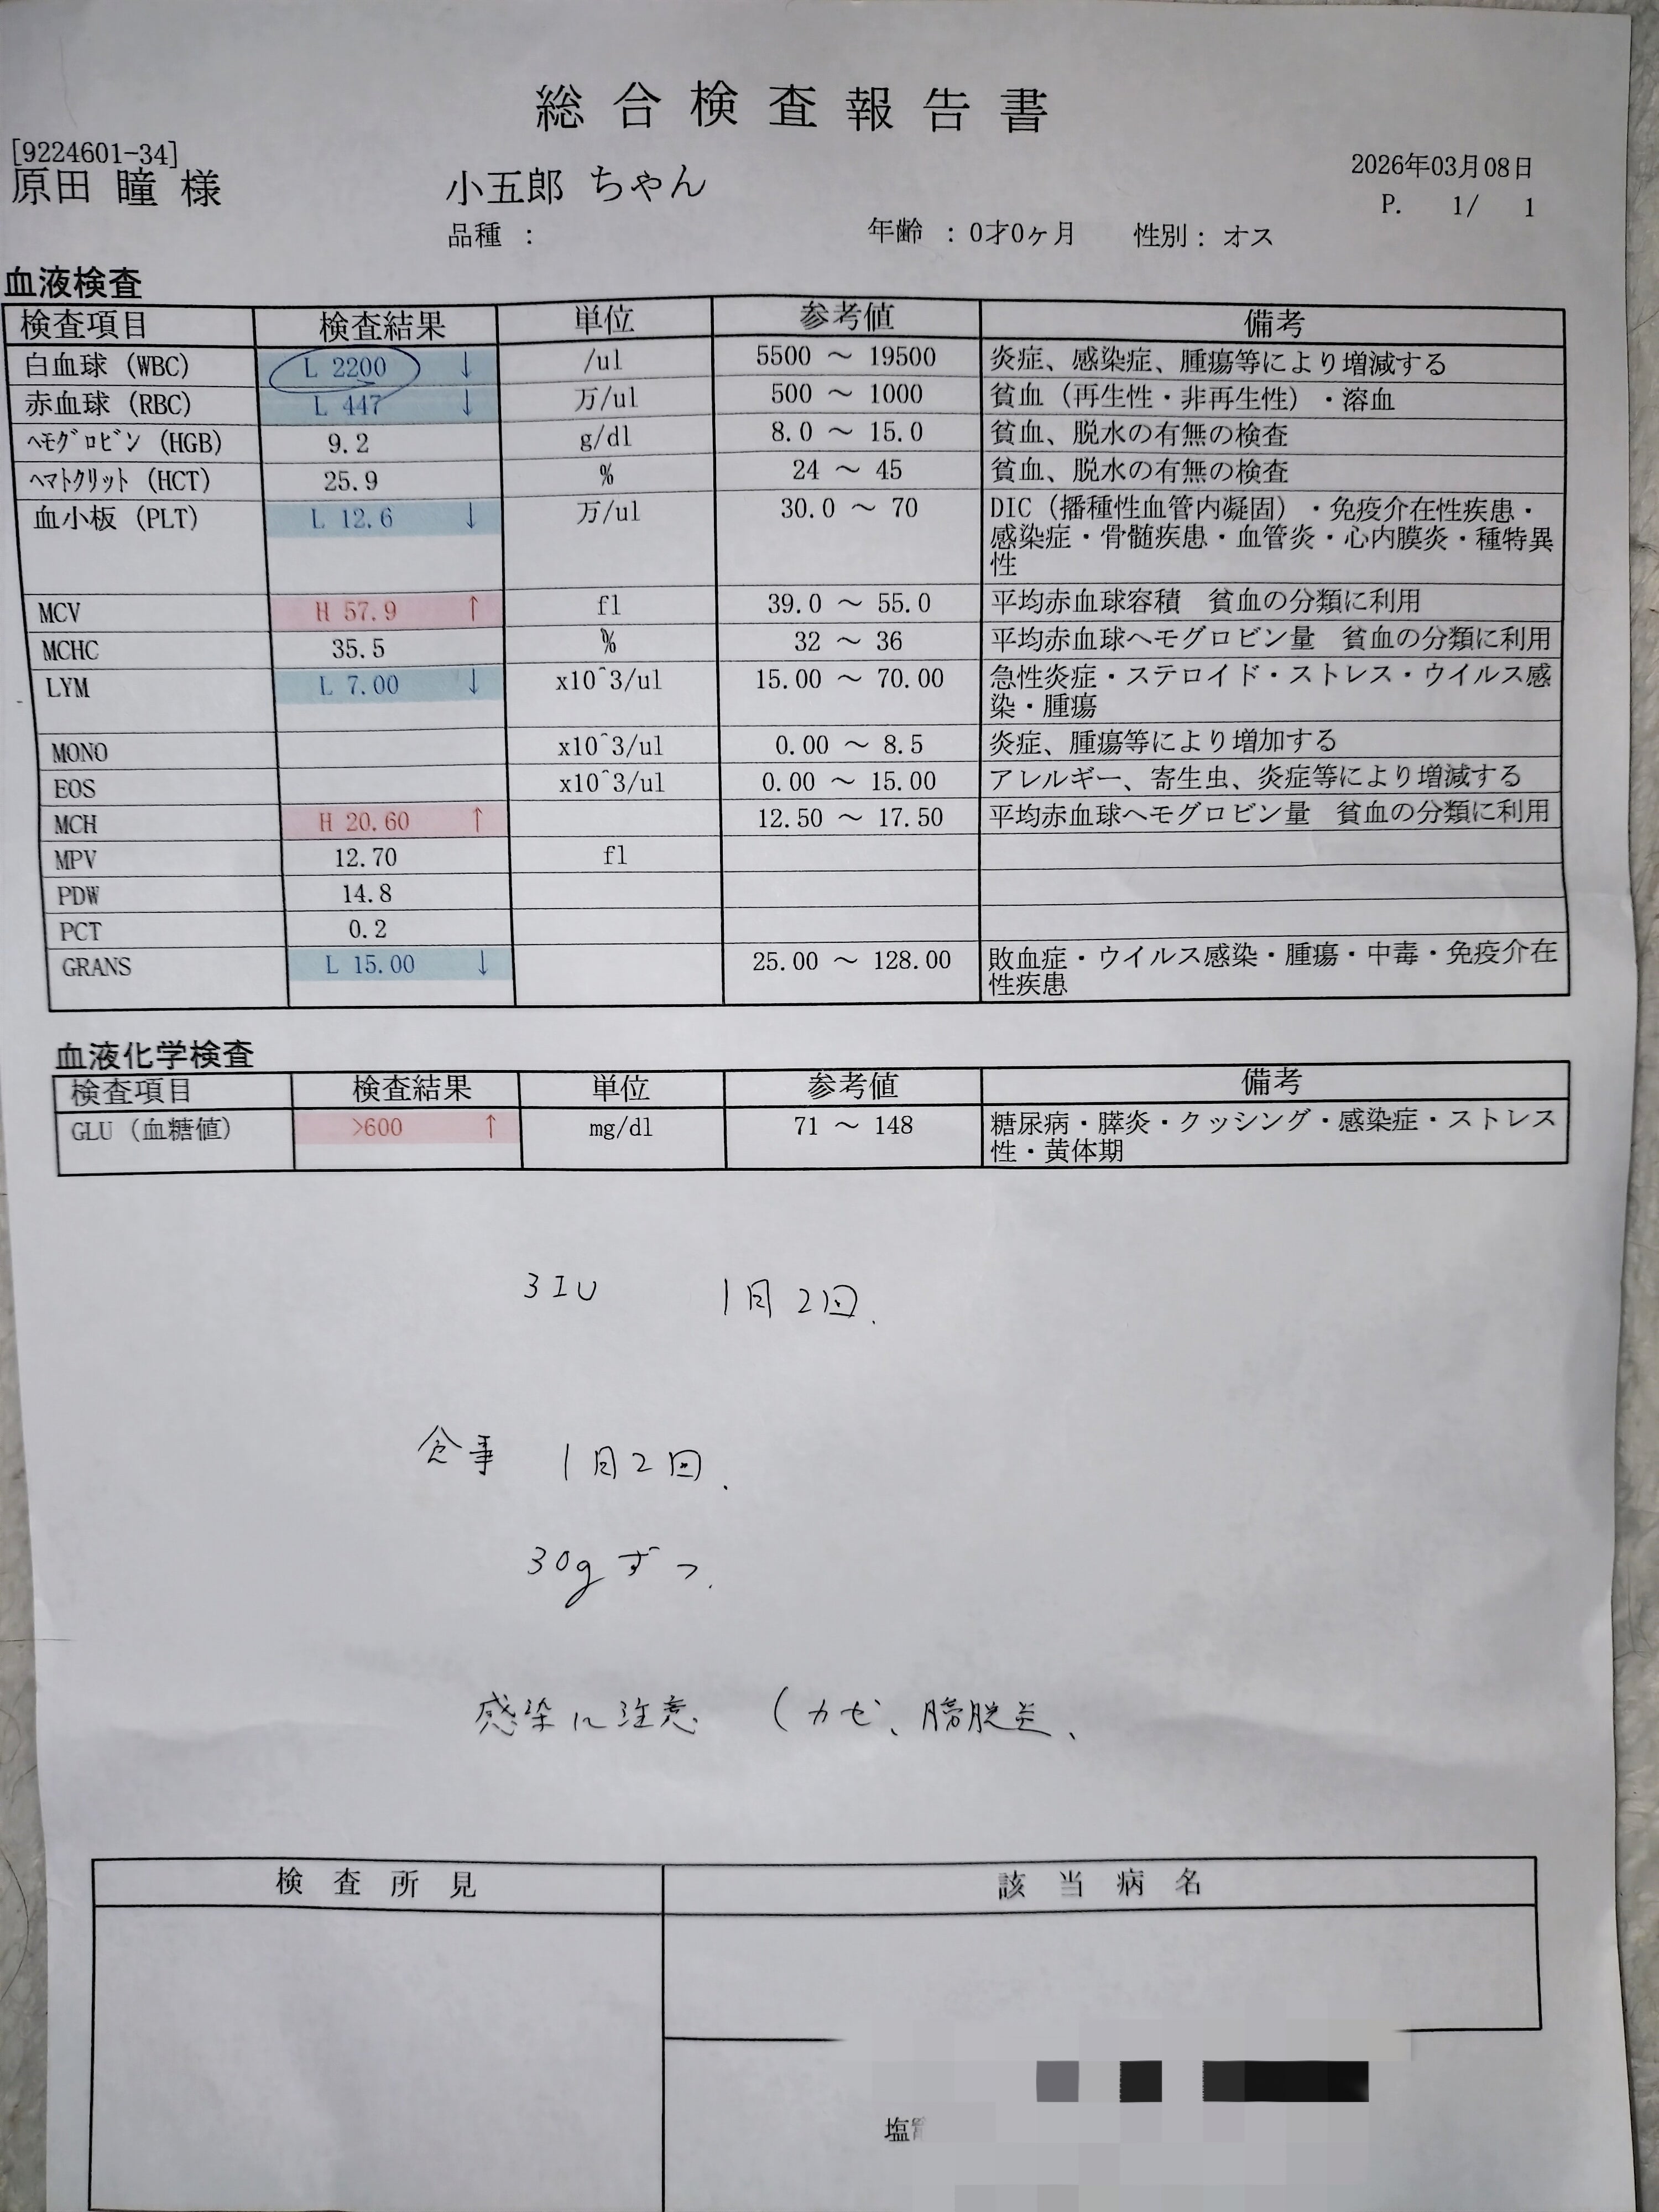 総合検査報告書
[9224601-34]
原田 瞳 様 小五郎 ちゃん 2026年03月08日
P. 1/ 1
品種 : 年齢 : 0才0ヶ月 性別 : オス
血液検査
検査項目 検査結果 単位 参考値 備考
白血球 (WBC) L 2200 ↓ /ul 5500 ～ 19500 炎症、感染症、腫瘍等により増減する
赤血球 (RBC) L 447 ↓ 万/ul 500 ～ 1000 貧血（再生性・非再生性）・溶血
ﾍﾓｸﾞﾛﾋﾞﾝ (HGB) 9.2 g/dl 8.0 ～ 15.0 貧血、脱水の有無の検査
ﾍﾏﾄｸﾘｯﾄ (HCT) 25.9 % 24 ～ 45 貧血、脱水の有無の検査
血小板 (PLT) L 12.6 ↓ 万/ul 30.0 ～ 70 DIC（播種性血管内凝固）・免疫介在性疾患・
感染症・骨髄疾患・血管炎・心内膜炎・種特異
性
MCV H 57.9 ↑ fl 39.0 ～ 55.0 平均赤血球容積 貧血の分類に利用
MCHC 35.5 % 32 ～ 36 平均赤血球ヘモグロビン量 貧血の分類に利用
LYM L 7.00 ↓ x10^3/ul 15.00 ～ 70.00 急性炎症・ステロイド・ストレス・ウイルス感
染・腫瘍
MONO x10^3/ul 0.00 ～ 8.5 炎症、腫瘍等により増加する
EOS x10^3/ul 0.00 ～ 15.00 アレルギー、寄生虫、炎症等により増減する
MCH H 20.60 ↑ 12.50 ～ 17.50 平均赤血球ヘモグロビン量 貧血の分類に利用
MPV 12.70 fl
PDW 14.8
PCT 0.2
GRANS L 15.00 ↓ 25.00 ～ 128.00 敗血症・ウイルス感染・腫瘍・中毒・免疫介在
性疾患
血液化学検査
検査項目 検査結果 単位 参考値 備考
GLU (血糖値) >600 ↑ mg/dl 71 ～ 148 糖尿病・膵炎・クッシング・感染症・ストレス
性・黄体期
3IU 1日2回.
食事 1日2回.
30gずつ.
感染に注意 (カゼ、膀胱炎、
検査所見 該当病名
塩